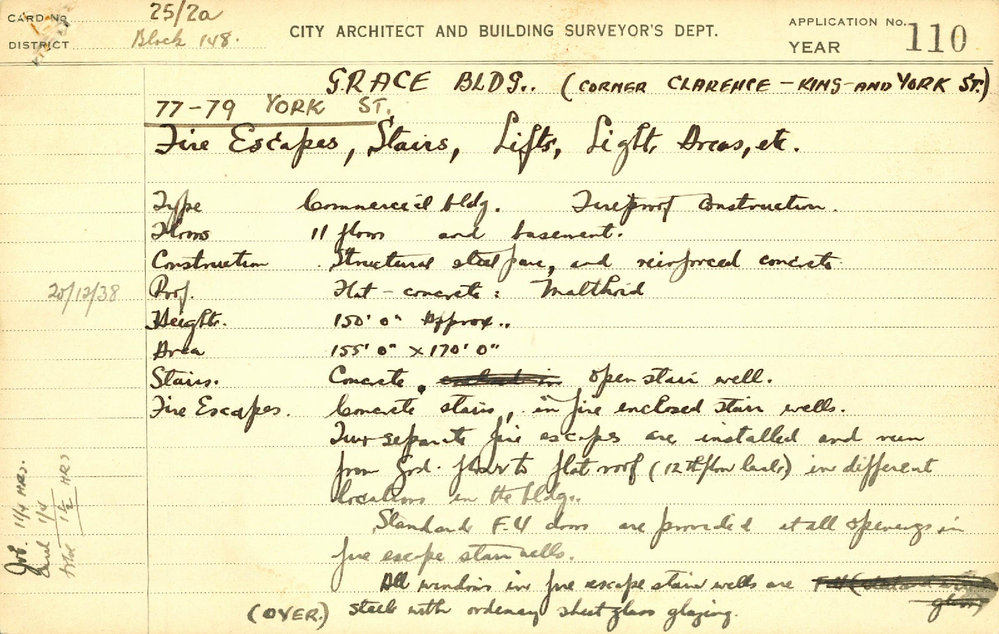 CARD No. 25/2a
DISTRICT Block 148.
CITY ARCHITECT AND BUILDING SURVEYOR'S DEPT.
APPLICATION No. 110
YEAR
GRACE BLDG.. (CORNER CLARENCE - KING - AND YORK ST.)
77-79 YORK ST.
Fire Escapes, Stairs, Lifts, Light Areas, etc.
Type Commercial bldg. Fireproof construction.
Floors 11 floors and basement.
Construction Structural steel, and reinforced concrete
20/12/38 Roof. Flat - concrete: Malthoid
Height. 150' 0" Approx..
Area 155' 0" x 170' 0"
Stairs. Concrete, open stair well.
Fire Escapes. Concrete stairs, in fire enclosed stair wells.
Two separate fire escapes are installed and run
from Grd. floor to flat roof (12th floor level) in different
locations in the bldg..
Standard F.4 doors are provided at all openings in
fire escape stair wells.
All windows in fire escape stair wells are
glass)
(OVER.) steel with ordenary sheet glass glazing.
Job. 1 1/4 HRS.
1/4
1 1/2 HRS